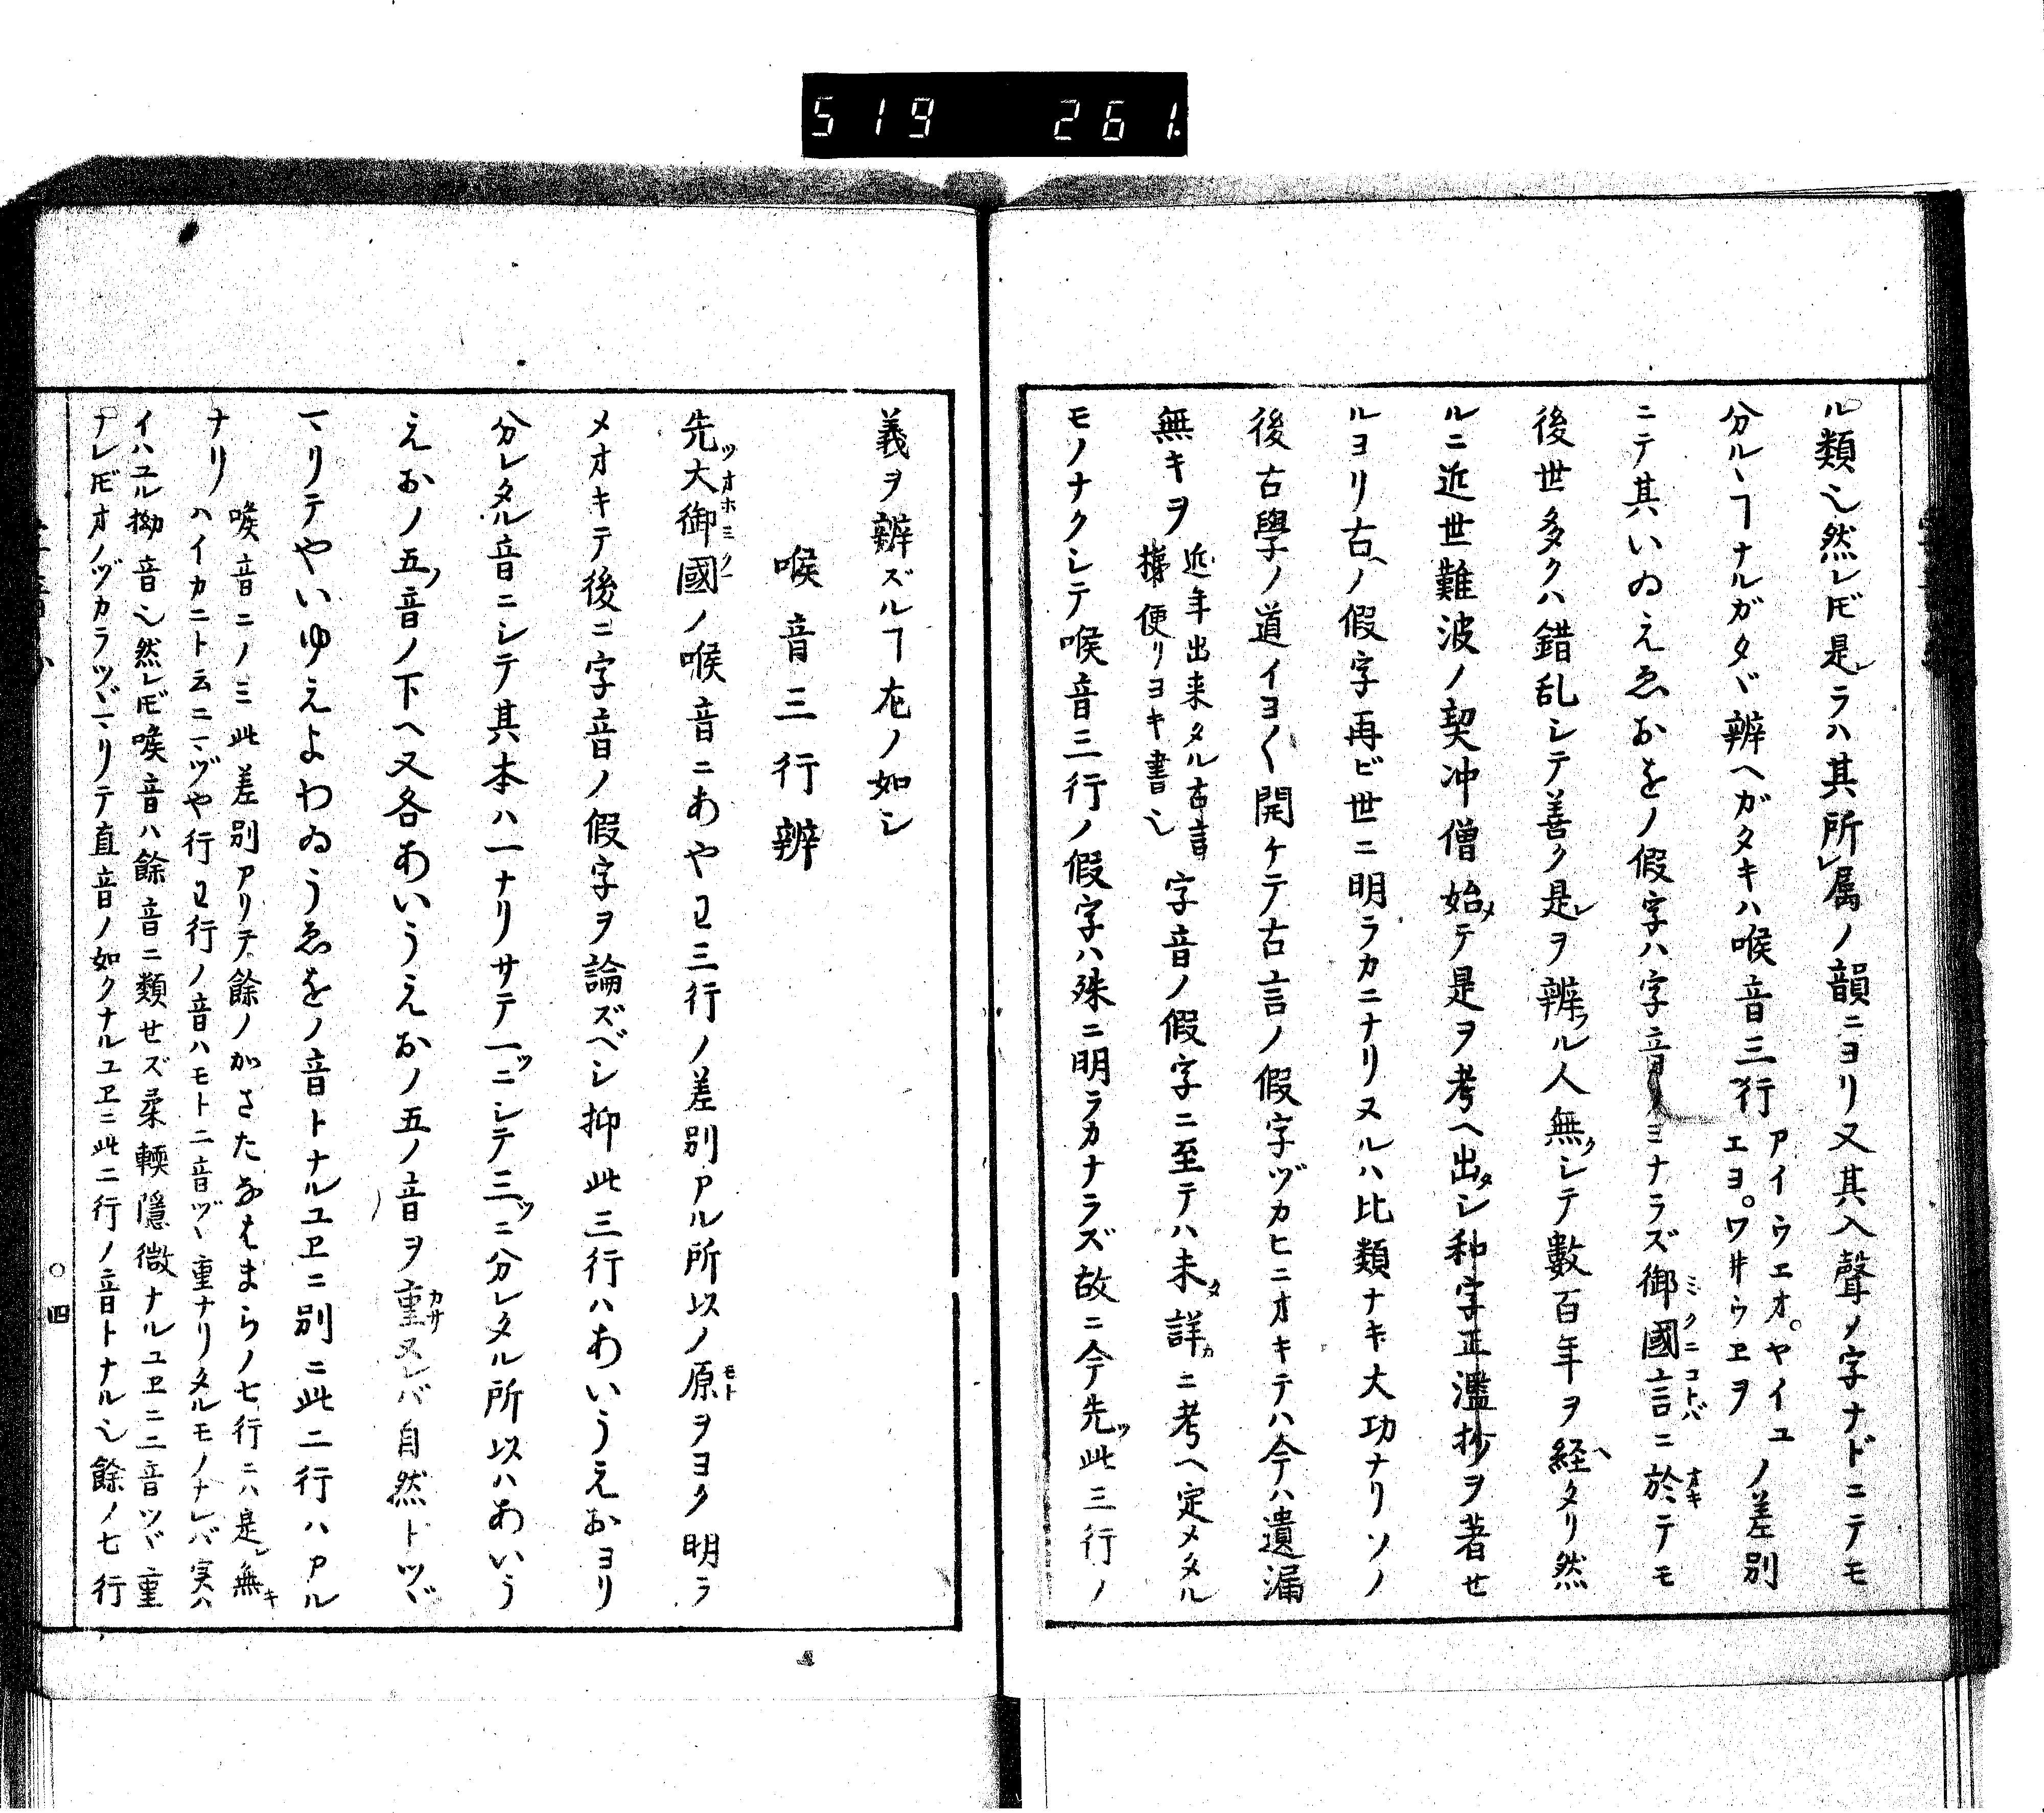 519 261.
ル類也然レ𪜈是レラハ其所レ属ノ韻ニヨリ又其入聲ノ字ナドニテモ
分ルヽヿナルガタヾ辨ヘガタキハ喉音三行アイウエオ。ヤイユエヨ。ワヰウヱヲノ差別
ニテ其いゐえゑおをノ假字ハ字音ノミナラズ御國言ミクニコトバニ於オキテモ
後世多クハ錯乱シテ善ク是レヲ辨フル人無クシテ數百年ヲ経ヘタリ然
ルニ近世難波ノ契冲僧始メテ是ヲ考ヘ出タシ和字正濫抄ヲ著せ
ルヨリ古ヘノ假字再ビ世ニ明ラカニナリヌルハ比類ナキ大功ナリソノ
後古學ノ道イヨ〱開ケテ古言ノ假字ヅカヒニオキテハ今ハ遺漏
無キヲ近年出来タル古言梯便リヨキ書也字音ノ假字ニ至テハ未タ詳カニ考ヘ定メタル
モノナクシテ喉音三行ノ假字ハ殊ニ明ラカナラズ故ニ今先ツ此三行ノ
義ヲ辨ズルヿ左ノ如シ
喉音三行辨
先ツ大御國オホミクニノ喉音ニあやわ三行ノ差別アル所以ノ原モトヲヨク明ラ
メオキテ後ニ字音ノ假字ヲ論ズベシ抑此三行ハあいうえおヨリ
分レタル音ニシテ其本ハ一ナリサテ一ツニシテ三ツニ分レタル所以ハあいう
えおノ五ノ音ノ下ヘ又各あいうえおノ五ノ音ヲ重カサヌレバ自然トツヾ
マリテやいゆえよわゐうゑをノ音トナルユヱニ別ニ此二行ハアル
ナリ喉音ニノミ此差別アリテ餘ノかさたなはまらノ七行ニハ是レ無キ
ハイカニト云ニマヅや行わ行ノ音ハモト二音ヅヽ重ナリタルモノナレバ実ハ
イハユル拗音也然レ𪜈喉音ハ餘音ニ類せズ柔輭隱微ナルユヱニ二音ツヾ重
ナレ𪜈オノヅカラツヾマリテ直音ノ如クナルユヱニ此二行ノ音トナル也餘ノ七行
○四